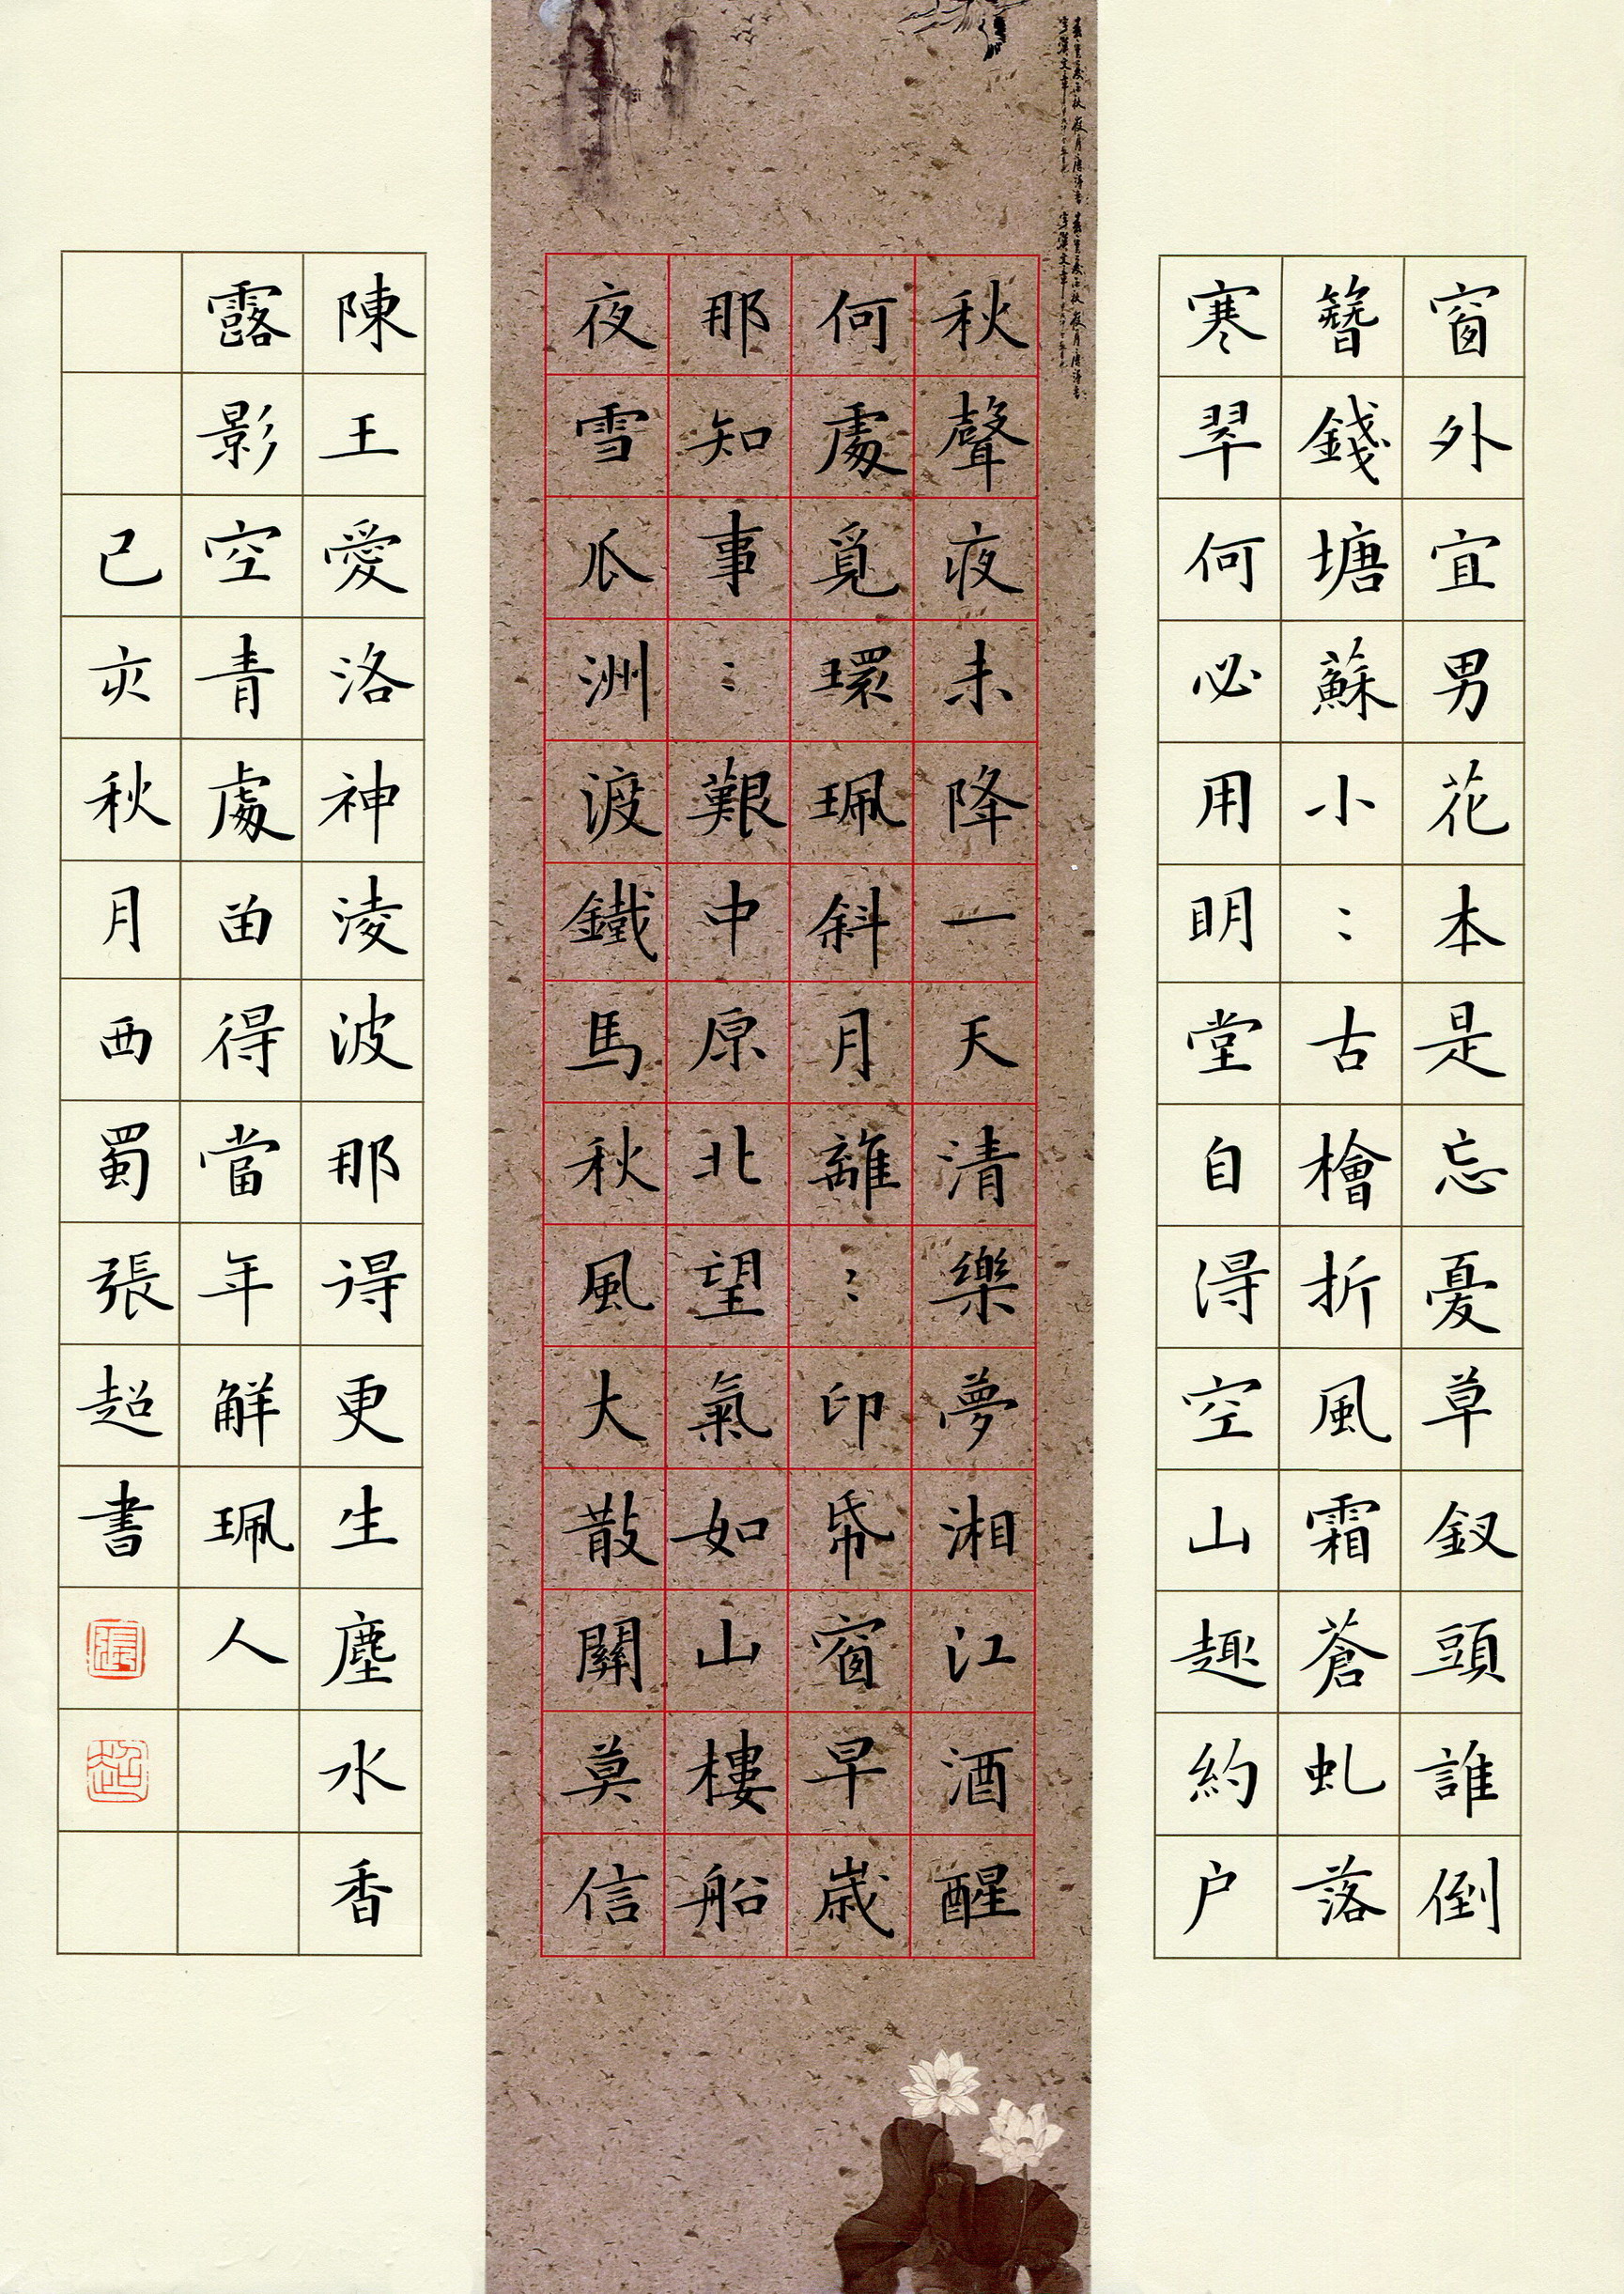 窗外宜男花本是忘憂草釵頭誰倒
簪錢塘蘇小：古檜折風霜蒼虬落
寒翠何必用明堂自得空山趣約户
秋聲夜未降一天清樂夢湘江酒醒
何處覓環珮斜月離：印帋窗早歲
那知事：艱中原北望氣如山樓船
夜雪瓜洲渡鐵馬秋風大散關莫信
陳王愛洛神淩波那得更生塵水香
露影空青處留得當年解珮人
己亥秋月西蜀張超書